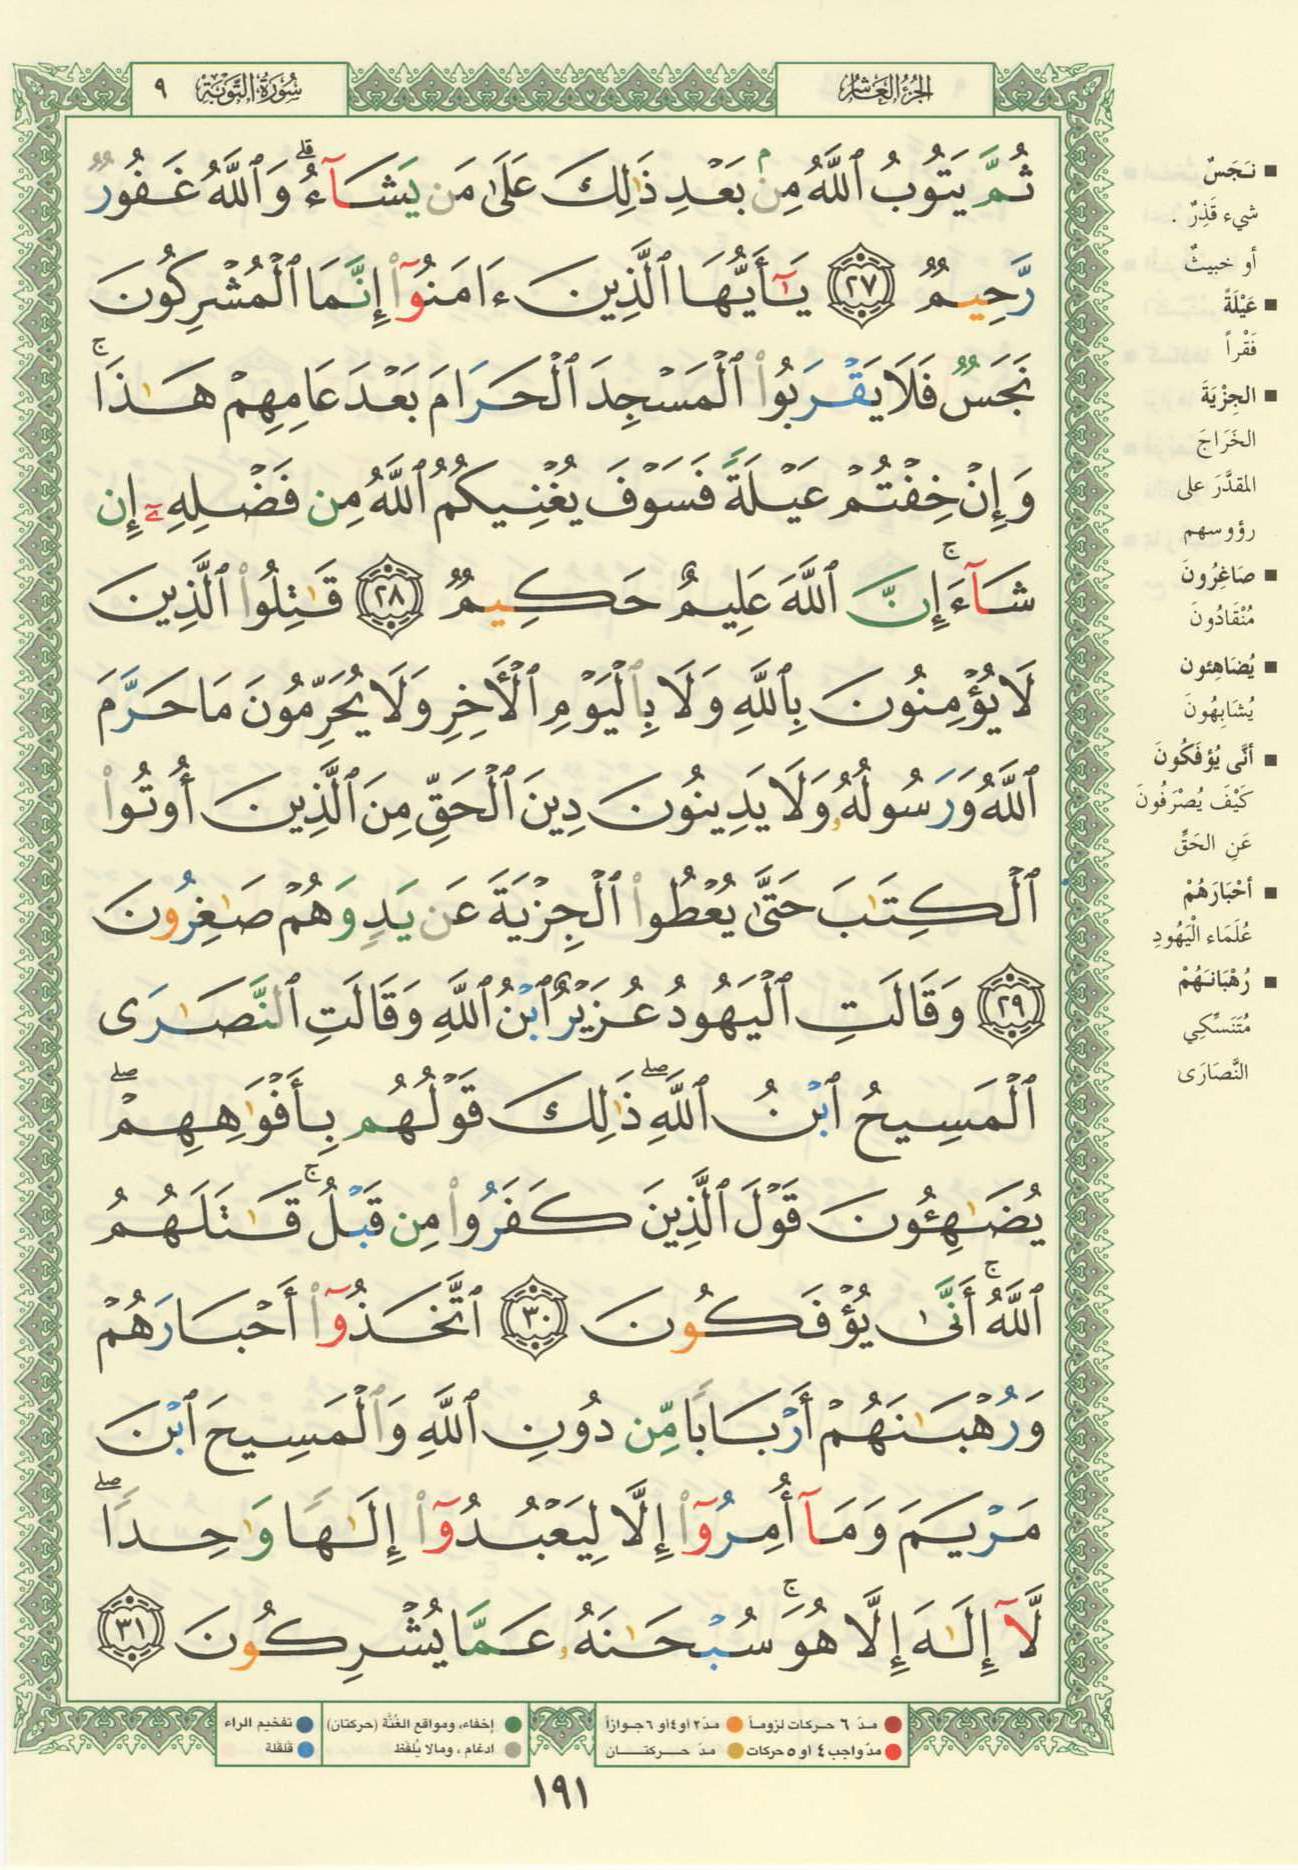 سُورَةُ التَّوْبَةِ ٩
الجُزْءُ العَاشِرُ
ثُمَّ يَتُوبُ ٱللَّهُ مِنۢ بَعْدِ ذَٰلِكَ عَلَىٰ مَن يَشَآءُ ۗ وَٱللَّهُ غَفُورٌ
رَّحِيمٌ ﴿٢٧﴾ يَٰٓأَيُّهَا ٱلَّذِينَ ءَامَنُوٓا۟ إِنَّمَا ٱلْمُشْرِكُونَ
نَجَسٌ فَلَا يَقْرَبُوا۟ ٱلْمَسْجِدَ ٱلْحَرَامَ بَعْدَ عَامِهِمْ هَٰذَا ۚ
وَإِنْ خِفْتُمْ عَيْلَةً فَسَوْفَ يُغْنِيكُمُ ٱللَّهُ مِن فَضْلِهِۦٓ إِن
شَآءَ ۚ إِنَّ ٱللَّهَ عَلِيمٌ حَكِيمٌ ﴿٢٨﴾ قَٰتِلُوا۟ ٱلَّذِينَ
لَا يُؤْمِنُونَ بِٱللَّهِ وَلَا بِٱلْيَوْمِ ٱلْأَخِرِ وَلَا يُحَرِّمُونَ مَا حَرَّمَ
ٱللَّهُ وَرَسُولُهُۥ وَلَا يَدِينُونَ دِينَ ٱلْحَقِّ مِنَ ٱلَّذِينَ أُوتُوا۟
ٱلْكِتَٰبَ حَتَّىٰ يُعْطُوا۟ ٱلْجِزْيَةَ عَن يَدٍ وَهُمْ صَٰغِرُونَ
﴿٢٩﴾ وَقَالَتِ ٱلْيَهُودُ عُزَيْرٌ ٱبْنُ ٱللَّهِ وَقَالَتِ ٱلنَّصَٰرَى
ٱلْمَسِيحُ ٱبْنُ ٱللَّهِ ۖ ذَٰلِكَ قَوْلُهُم بِأَفْوَٰهِهِمْ ۖ
يُضَٰهِـُٔونَ قَوْلَ ٱلَّذِينَ كَفَرُوا۟ مِن قَبْلُ ۚ قَٰتَلَهُمُ
ٱللَّهُ ۚ أَنَّىٰ يُؤْفَكُونَ ﴿٣٠﴾ ٱتَّخَذُوٓا۟ أَحْبَارَهُمْ
وَرُهْبَٰنَهُمْ أَرْبَابًا مِّن دُونِ ٱللَّهِ وَٱلْمَسِيحَ ٱبْنَ
مَرْيَمَ وَمَآ أُمِرُوٓا۟ إِلَّا لِيَعْبُدُوٓا۟ إِلَٰهًا وَٰحِدًا ۖ
لَّآ إِلَٰهَ إِلَّا هُوَ ۚ سُبْحَٰنَهُۥ عَمَّا يُشْرِكُونَ ﴿٣١﴾
■ نَجَسٌ
شيء قَذِرٌ .
أو خبيثٌ
■ عَيْلَةً
فَقْراً
■ الجِزْيَةَ
الخَرَاجَ
المقدَّرَ على
رؤوسهم
■ صَاغِرُونَ
مُنْقَادُونَ
■ يُضَاهِئون
يُشَابِهُونَ
■ أنَّى يُؤفَكُونَ
كَيْفَ يُصْرَفُونَ
عَنِ الحَقِّ
■ أحْبَارَهُمْ
عُلَمَاء الْيَهُودِ
■ رُهْبَانَهُمْ
مُتَنَسِّكِي
النَّصَارَى
مدّ ٦ حركات لزوماً ● مدّ ٢ أو ٤ أو ٦ جوازاً
مدّ واجب ٤ أو ٥ حركات ● مدّ حركتان
إخفاء، ومواقع الغُنَّة (حركتان) ● تفخيم الراء
ادغام ، ومالا يُلفَظ ● قلقلة
١٩١